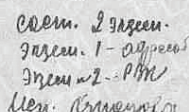 сост. 2 экзем.
Экзем. 1 - адресат
Экзем № 2 -
Исп.